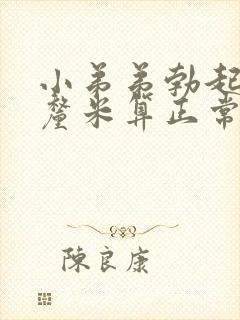 小弟弟勃起
釐米算正常
陳良康